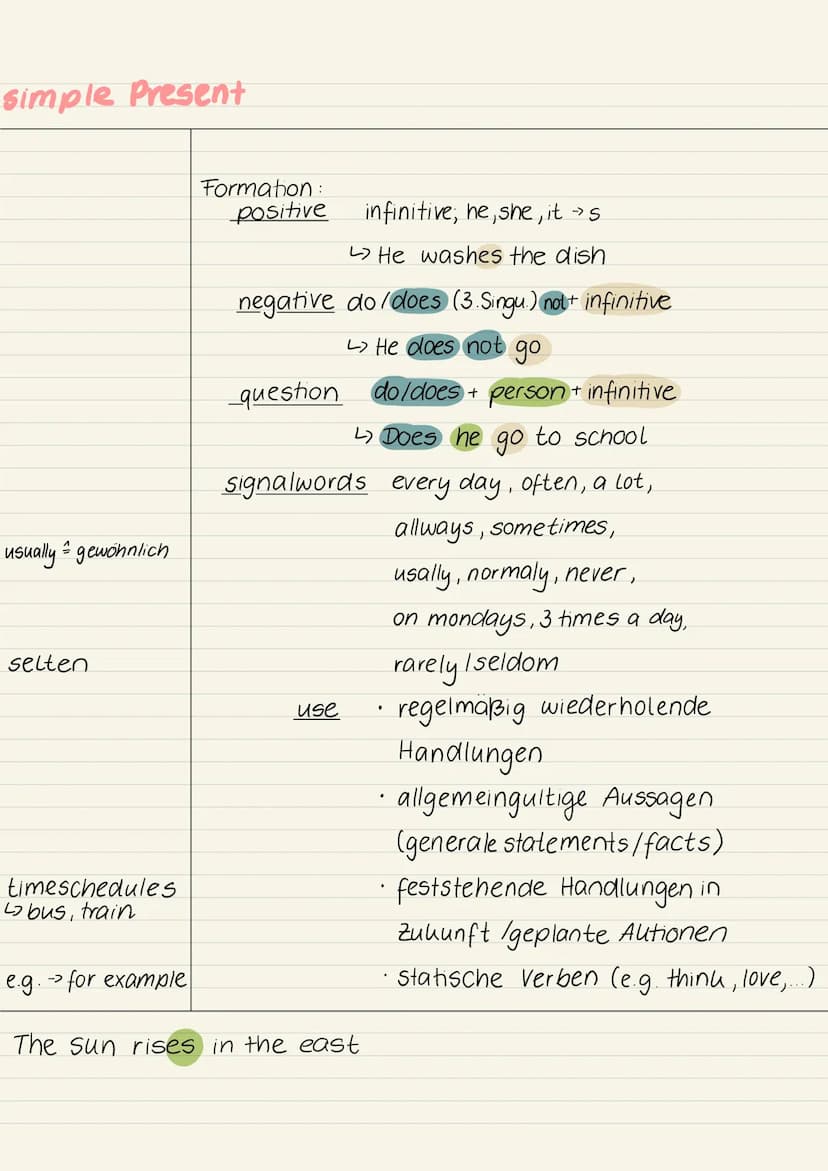 simple Present
Formation:
positive infinitive; he, she, it → s
↳ He washes the dish
negative do/does (3. Singu.) not + infinitive
↳ He does not go
question do/does + person + infinitive
↳ Does he go to school
signalwords every day, often, a lot,
allways, sometimes,
usually ≙ gewöhnlich
usally, normaly, never,
on mondays, 3 times a day,
selten rarely / seldom
use • regelmäßig wiederholende
Handlungen
• allgemeingültige Aussagen
(generale statements/facts)
timeschedules • feststehende Handlungen in
↳ bus, train
Zukunft / geplante Aktionen
e.g. → for example • statische Verben (e.g. think, love, ...)
The sun rises in the east